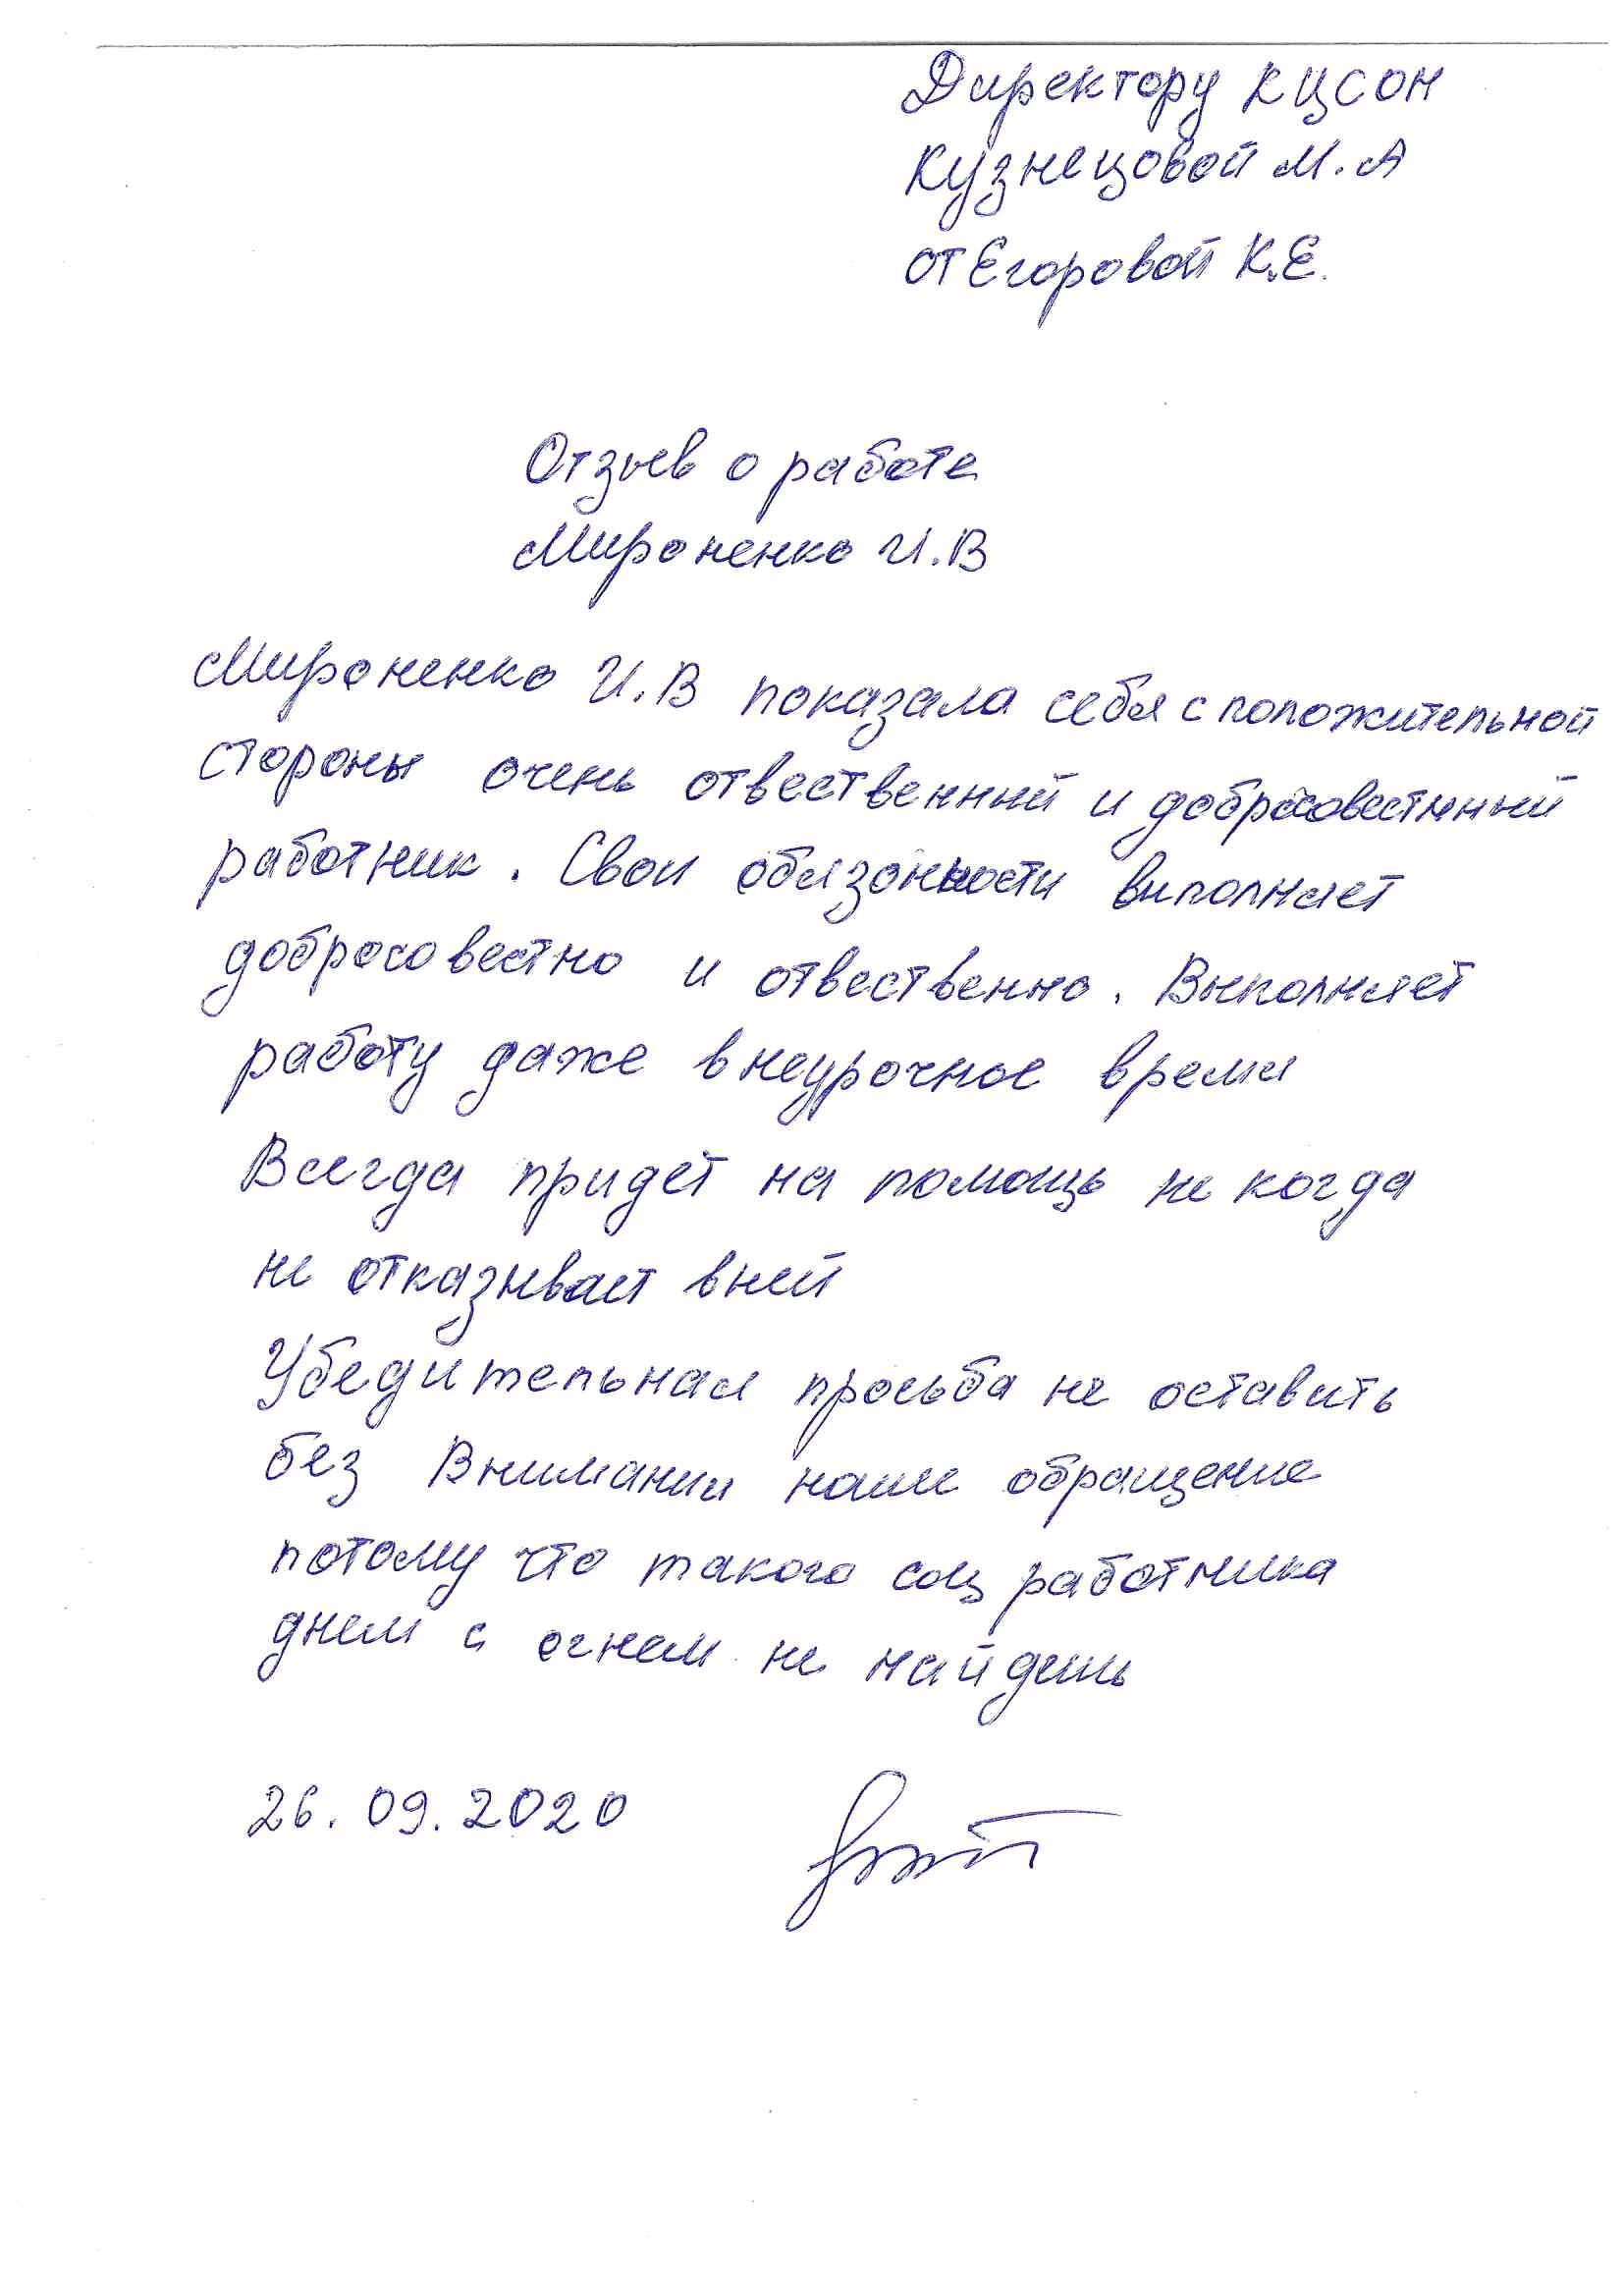 Директору КЦСОН
Кузнецовой М.А
от Егоровой К.Е.
Отзыв о работе
Мироненко И.В
Мироненко И.В показала себя с положительной
стороны очень отвественный и добросовестнный
работник. Свои обязонности выполняет
добросовестно и отвественно. Выполняет
работу даже внеурочное время
Всегда придет на помощь не когда
не отказывает вней
Убедительная просьба не оставить
без Внимании наше обращение
потому что такого соц работника
днем с огнем не найдешь
26.09.2020